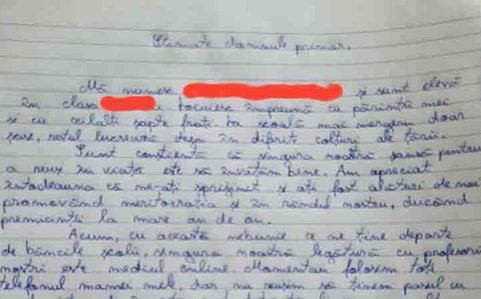 Stimate domnule primar,
Mă numesc și sunt elevă
în clasa locuiesc împreună cu părinții mei
și cu ceilalți șapte frați. La școală mai mergem doar
șase, restul lucrează deja în diferite colțuri de țară.
Sunt conștientă că singura noastră șansă pentru
a reuși în viață este să învățăm bine. Am apreciat
întodeauna că ne-ați sprijinit și ați fost alături de noi
promovând meritocrația și în rândul nostru, ducând
premianții la mare an de an.
Acum, cu această nebunie ce ne ține departe
de băncile școlii, singura noastră legătură cu profesorii
noștri este mediul online. Momentan folosim toți
telefonul mamei mele, dar nu reușim să ținem pasul cu